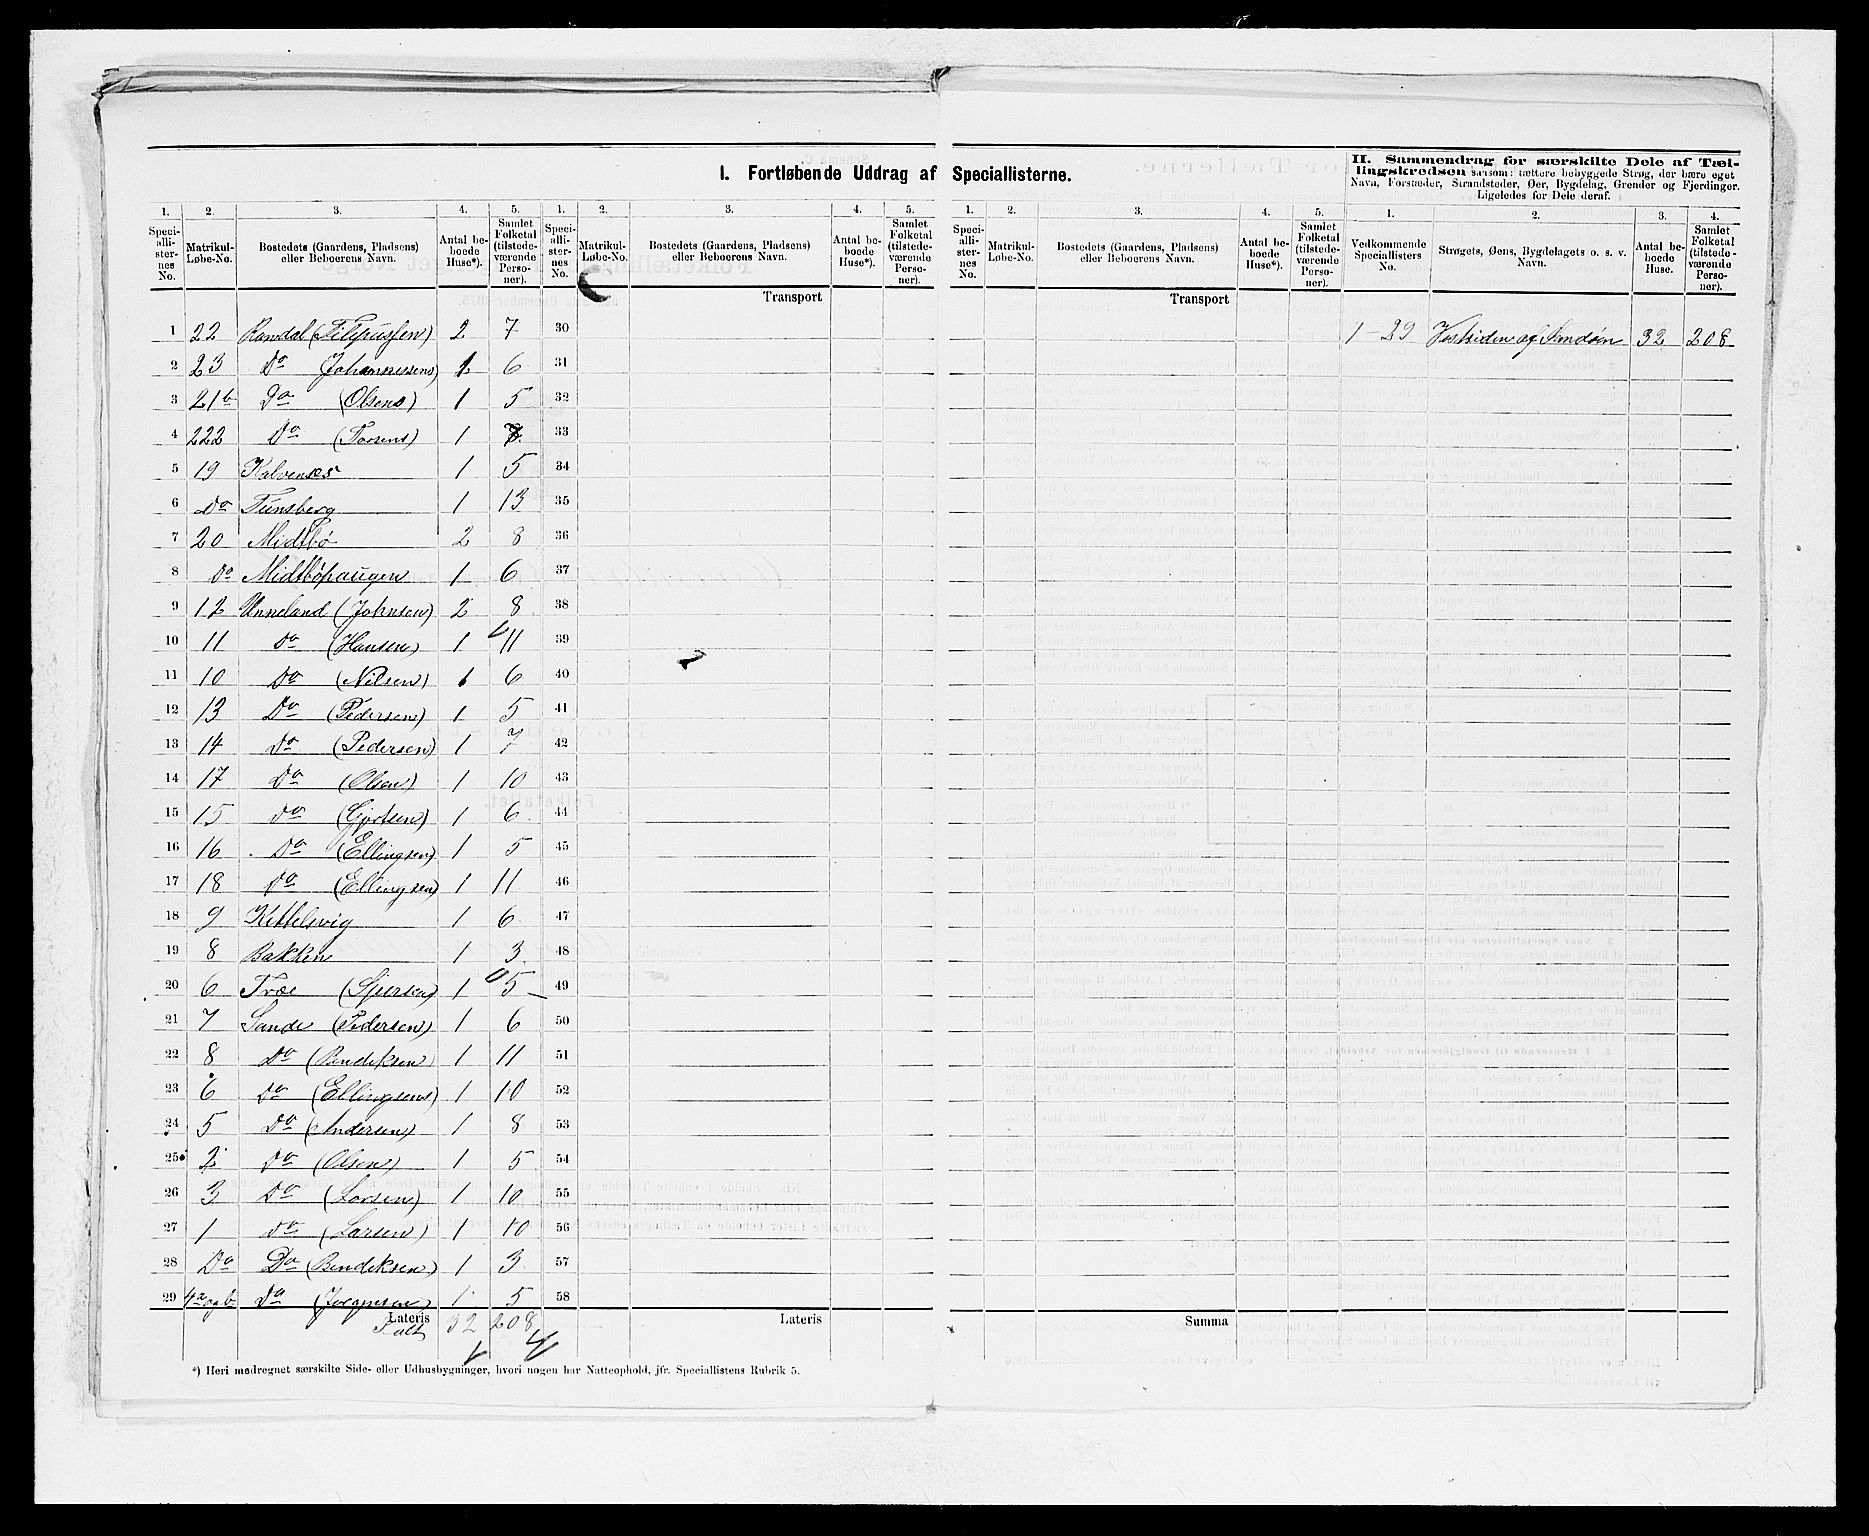 I. Fortløbende Uddrag af Speciallisterne.
II. Sammendrag for særskilte Dele af Tællingskredsen saasom: tættere bebyggede Strøg, der bære eget Navn, Forstæder, Strandsteder, Øer, Bygdelag, Grender og Fjerdinger. Ligeledes for Dele deraf.
1. 2. 3. 4. 5. 1. 2. 3. 4. 5. 1. 2. 3. 4. 5. 1. 2. 3. 4.
Speciallisternes No. Matrikul-Løbe-No. Bostedets (Gaardens, Pladsens) eller Beboerens Navn. Antal beboede Huse*). Samlet Folketal (tilstedeværende Personer).
Speciallisternes No. Matrikul-Løbe-No. Bostedets (Gaardens, Pladsens) eller Beboerens Navn. Antal beboede Huse*). Samlet Folketal (tilstedeværende Personer).
Speciallisternes No. Matrikul-Løbe-No. Bostedets (Gaardens, Pladsens) eller Beboerens Navn. Antal beboede Huse*). Samlet Folketal (tilstedeværende Personer).
Vedkommende Speciallisters No. Strøgets, Øens, Bygdelagets o. s. v. Navn. Antal beboede Huse. Samlet Folketal (tilstedeværende Personer).
Transport Transport
1 22 Randal (Filipussen) 2 7 30 1-29 Vestsiden af Sandøen 32 208
2 23 Do Johannessens) 1 6 31
3 21b Do (Olsens) 1 5 32
4 222 Do (Torsens) 1 33
5 19 Kalvenæs 1 5 34
6 Do Tunsberg 1 13 35
7 20 Midtbø 2 8 36
8 Do Midtbøhaugen 1 6 37
9 12 Unneland (Johnsen) 2 8 38
10 11 Do (Hansen) 1 11 39
11 10 Do (Nilsen) 1 6 40
12 13 Do (Pedersen) 1 5 41
13 14 Do (Pedersen) 1 7 42
14 17 Do (Olsen) 1 10 43
15 15 Do (Gjertsen) 1 6 44
16 16 Do (Ellingsen) 1 5 45
17 18 Do (Ellingsen) 1 11 46
18 9 Kittelsvig 1 6 47
19 8 Bakken 1 3 48
20 6 Træe 1 5 49
21 7 Sande (Pedersen) 1 6 50
22 8 Do (Bendiksen) 1 11 51
23 6 Do (Ellingsens) 1 10 52
24 5 Do (Andersen) 1 8 53
25 2 Do (Olsen) 1 5 54
26 3 Do (Larsen) 1 10 55
27 1 Do (Larsen) 1 10 56
28 Do Do (Bendiksen) 1 3 57
29 4a og b Do (Jørgensen) 1 5 58
Lateris 32 208 Lateris Summa
Ialt
*) Heri medregnet særskilte Side- eller Udhusbygninger, hvori nogen har Natteophold, jfr. Speciallistens Rubrik 5.